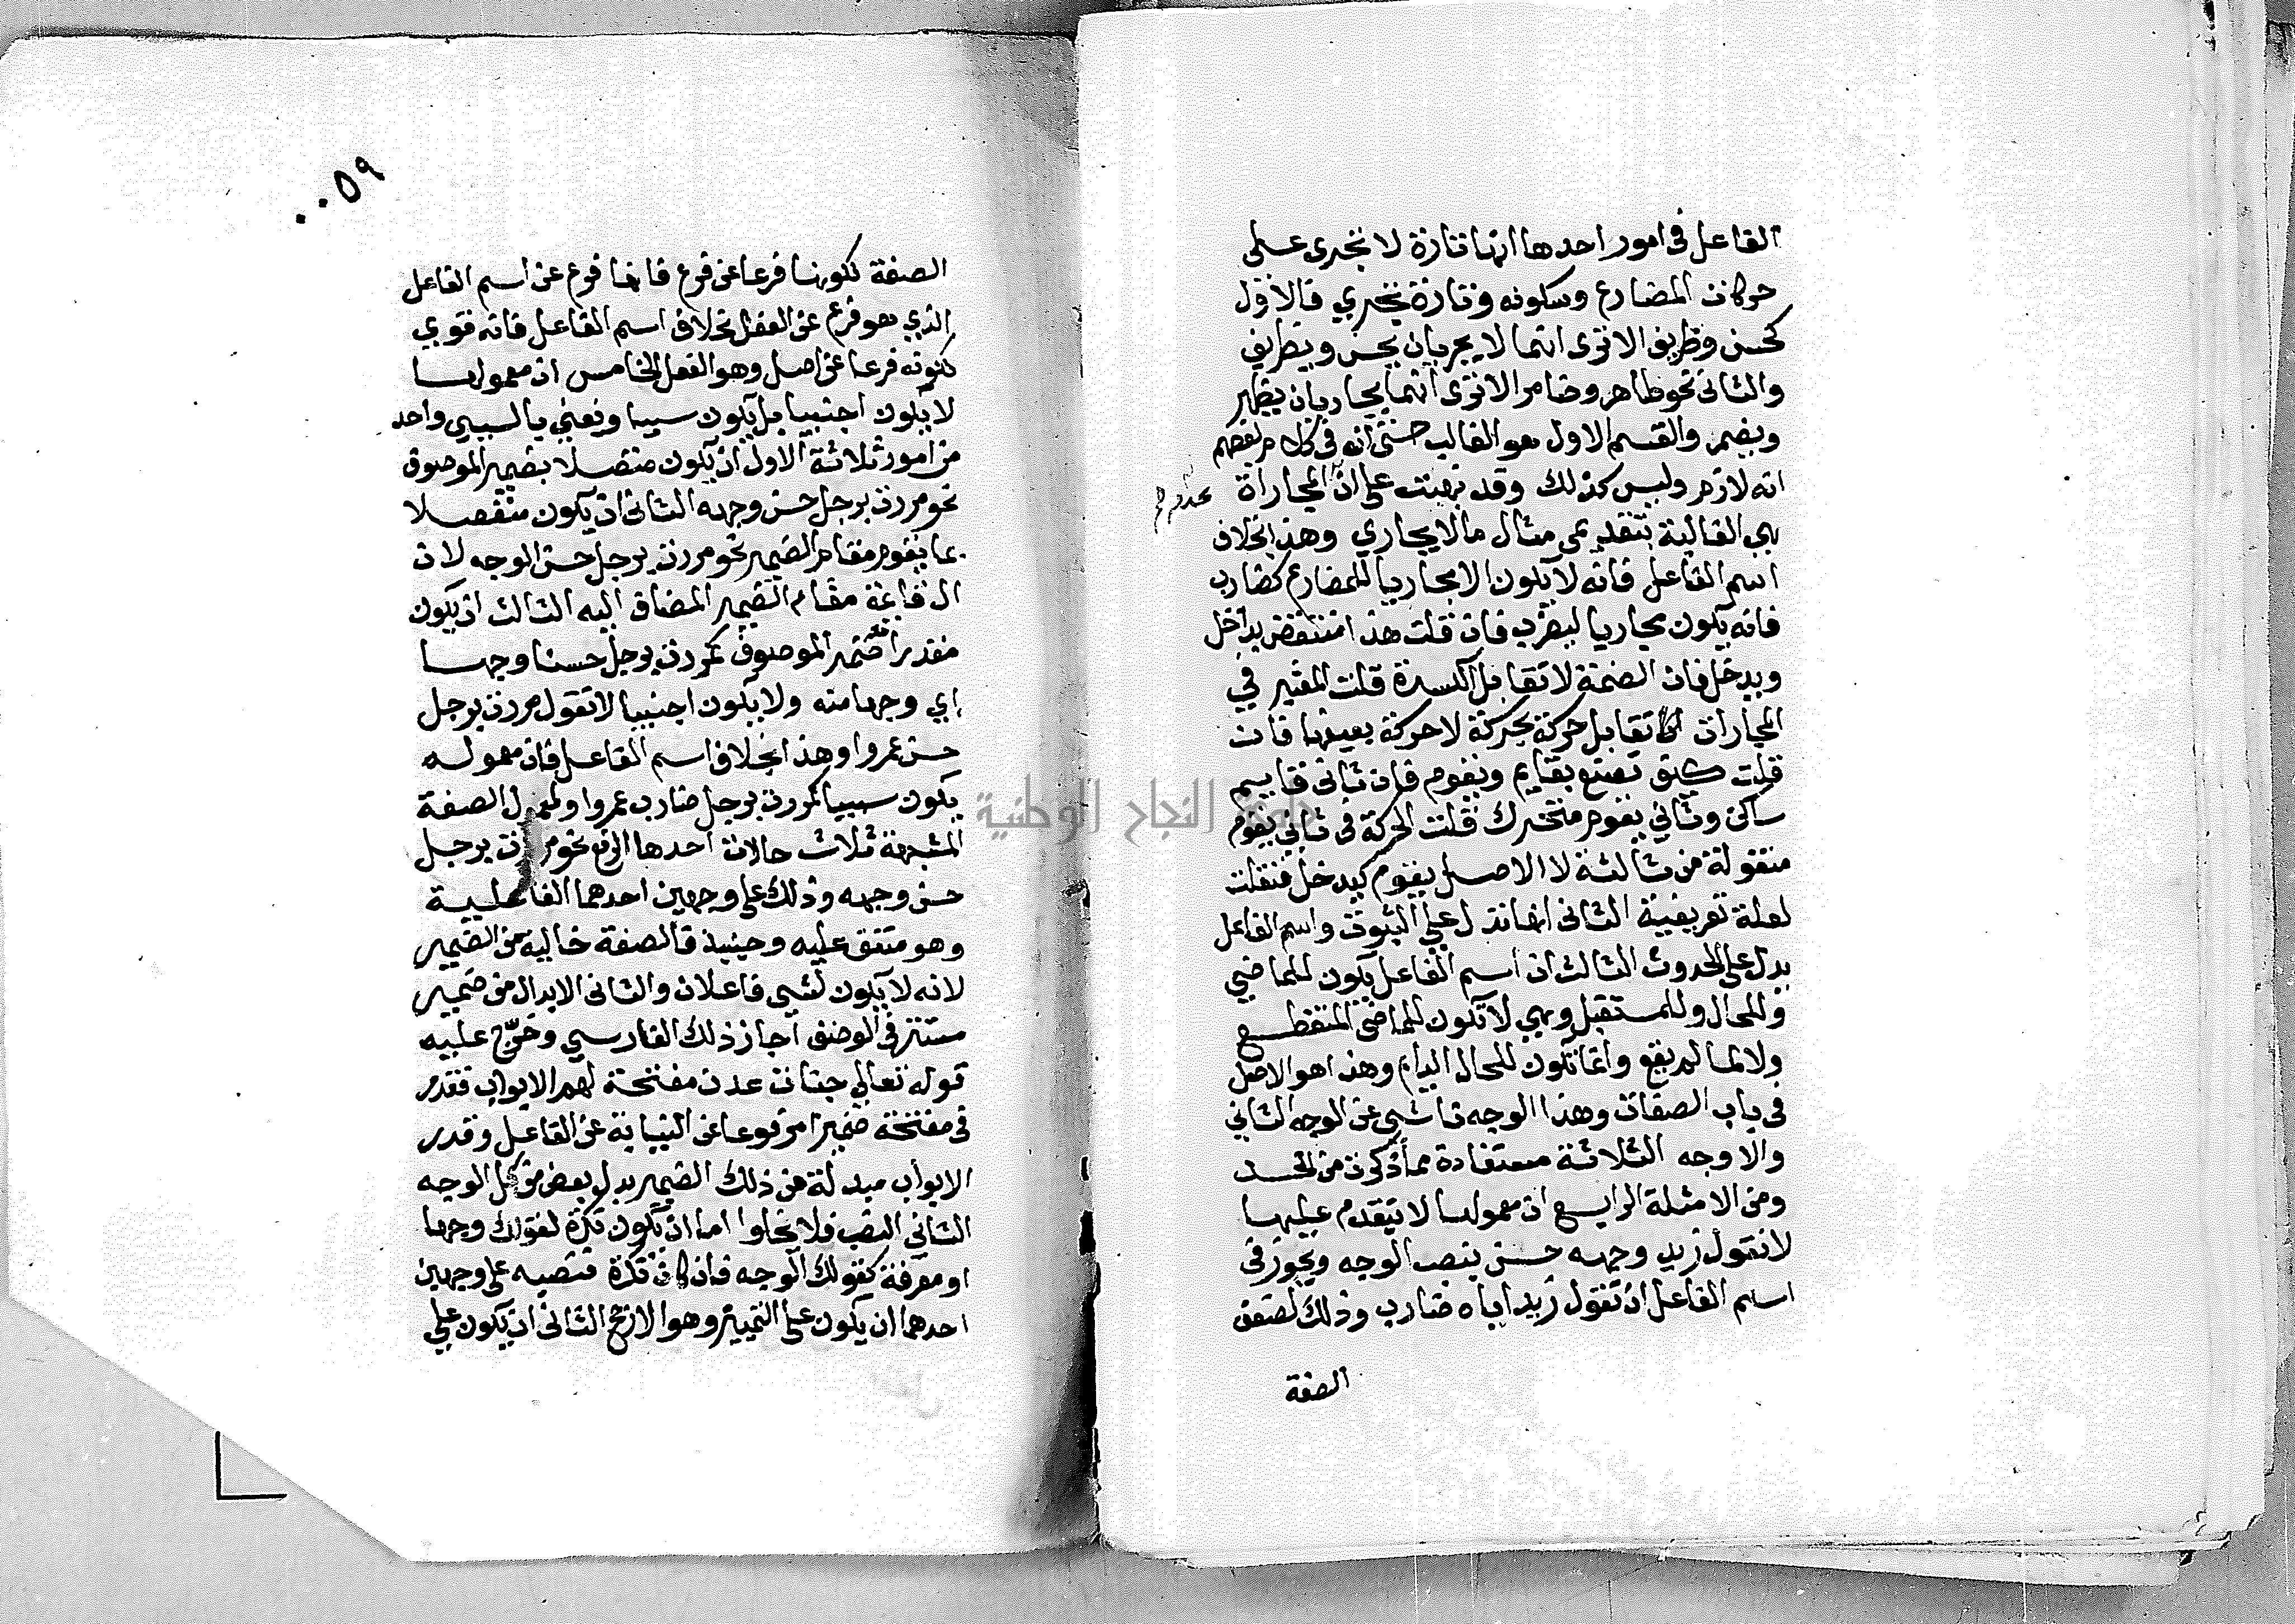 الفاعل في امور احدها انها تارة لا تجري على
حركات المضارع وسكونه وتارة تجري فالاول
كحسن وظريف الا ترى انهما لا يجريان يحسن ويظرف
والثاني نحو طاهر وضامر الا ترى انهما يجاريان يطهر
ويضمر والقسم الاول هو الغالب حتى انه في كلام بعضهم
انه لازم وليس كذلك وقد نبهت على ان المجاراة
هي الغالبة بتقديمي مثال ما لا يجاري وهذا بخلاف
اسم الفاعل فانه لا يكون الا مجاريا للمضارع كضارب
فانه يكون مجاريا ليضرب فان قلت هذا منتقض بداخل
ويدخل فان الضمة لا تقابل الكسرة قلت المعتبر في
المجارات تقابل حركة بحركة لا حركة بعينها فان
قلت كيف تصنع بقايم ويقوم فان ثاني قايم
ساكن وثاني يقوم متحرك قلت الحركة في ثاني يقوم
منقولة من ثالثة لا الاصل يقوم كيدخل فنقلت
لعلة تعريفية الثاني انها تدل على الثبوت واسم الفاعل
يدل على الحدوث الثالث ان اسم الفاعل يكون للماضي
وللحال وللمستقبل وهي لا تكون للماضي المنقطع
ولا لما لم يقع وانما تكون للحال الدايم وهذا هو الاصل
في باب الصفات وهذا الوجه ناشي عن الوجه الثاني
والاوجه الثلاثة مستفادة مما ذكرت من الحد
ومن الامثلة الرابع ان معمولها لا يتقدم عليها
لا تقول زيد وجهه حسن بنصب الوجه ويجوز في
اسم الفاعل ان تقول زيد اباه ضارب وذلك لضعف
الصفة
٠٠٥٩
الصفة لكونها فرعا عن فرع فانها فرع عن اسم الفاعل
الذي هو فرع عن الفعل بخلاف اسم الفاعل فانه قوي
لكونه فرعا عن اصل وهو الفعل الخامس ان معمولها
لا يكون اجنبيا بل يكون سببيا ونعني بالسببي واحد
من امور ثلاثة الاول ان يكون متصلا بضمير الموصوف
نحو مررت برجل حسن وجهه الثاني ان يكون متصلا
بما يقوم مقام الضمير نحو مررت برجل حسن الوجه لان
ال قايمة مقام الضمير المضاف اليه الثالث ان يكون
مقدرا معه ضمير الموصوف كمررت برجل حسنا وجها
اي وجها منه ولا يكون اجنبيا لا تقول مررت برجل
حسن عمروا وهذا بخلاف اسم الفاعل فان معموله
يكون سببيا كمررت برجل ضارب عمروا ولمعمول الصفة
المشبهة ثلاث حالات احدها الرفع نحو مررت برجل
حسن وجهه وذلك على وجهين احدهما الفاعلية
وهو متفق عليه وحينيذ فالصفة خالية من الضمير
لانه لا يكون لشي فاعلان والثاني الابدال من ضمير
مستتر في الوصف اجاز ذلك الفارسي وخرج عليه
قوله تعالى جنات عدن مفتحة لهم الابواب فقدر
في مفتحة ضميرا مرفوعا عن النيابة عن الفاعل وقدر
الابواب مبدلة من ذلك الضمير بدل بعض من كل الوجه
الثاني النصب فلا يخلوا اما ان يكون نكرة لقولك وجها
او معرفة كقولك الوجه فان كان نكرة فنصبه على وجهين
احدهما ان يكون على التمييز وهو الارجح الثاني ان يكون على
جامعة النجاح الوطنية